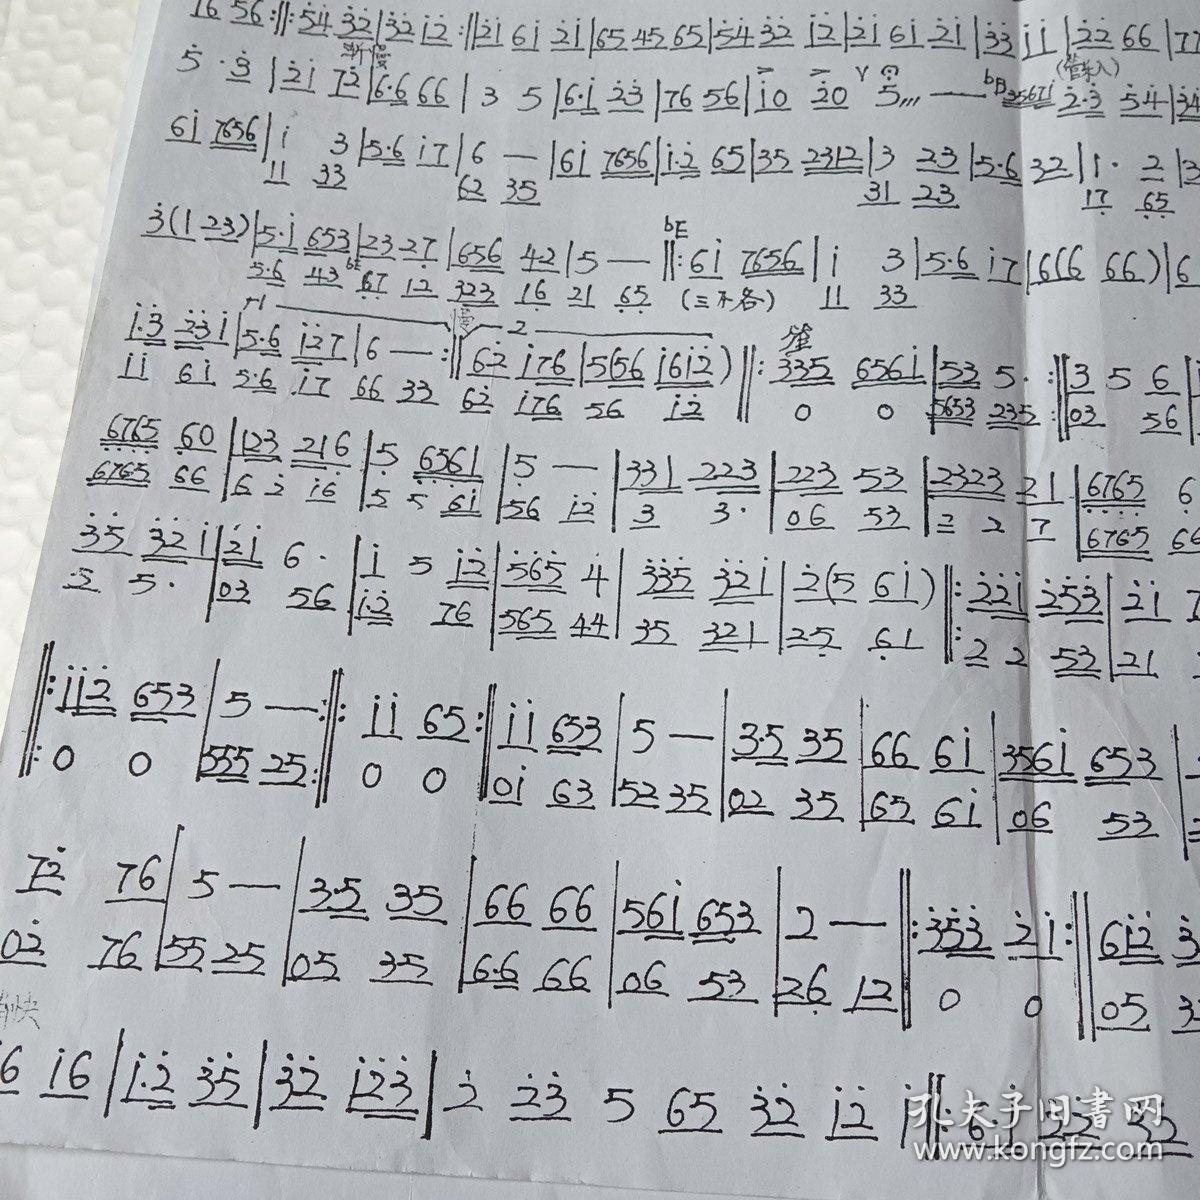 16 56 :‖: 54 32 | 32 12 :‖ 21 61 21 | 65 45 65 | 54 32 12 | 21 61 21 | 33 11 | 22 66 | 77
渐慢
(管子入)
5 · 3 | 21 72 | 6·6 66 | 3 5 | 6·1 23 | 76 56 | 10 20 5 — bB 35671 2·3 54 | 34
61 7656 | 1 3 | 5·6 17 | 6 — | 61 7656 | 1·2 65 | 35 2312 | 3 23 | 5·6 32 | 1· 2 | 3
11 33 62 35 31 23 17 65
bE
3 (1 23) | 5·1 653 | 23 27 | 656 4·2 | 5 — ‖: 61 7656 | 1 3 | 5·6 17 | 6 (6 66) | 6
5·6 43 bE 67 12 323 16 21 65 (三不各) 11 33
1·3 231 | 5·6 127 | 6 — :‖ 62 176 | 5656 1612 ) ‖: 335 6561 | 53 5· :‖: 3 5 6
11 61 5·6 17 66 33 62 176 56 12 0 0 5653 235 03 56
6765 60 | 123 216 | 5 6561 | 5 — | 331 223 | 223 53 | 2323 21 | 6765 6
6765 66 6 2 16 5 5 61 56 12 3 3· 06 53 2 2 7 6765 66
35 321 | 21 6· | 1 5 12 | 565 4 | 335 321 | 2 (5 61) ‖: 221 253 | 21 7
5 5· 03 56 1·2 76 565 44 35 321 25 61 2 2 53 21
‖: 112 653 | 5 — :‖: 11 65 :‖ 11 653 | 5 — | 3·5 35 | 66 61 | 3561 653
0 0 555 25 0 0 01 63 52 35 02 35 65 61 06 53
72 76 | 5 — | 3·5 35 | 66 66 | 561 653 | 2 — ‖: 353 21 :‖ 612 3
02 76 55 25 05 35 6·6 66 06 53 26 12 0 0 05 3
快
6 16 | 1·2 35 | 32 123 | 2 23 5 65 32 12 1 ‖: 6·1 32 32
孔夫子旧書网
www.kongfz.com